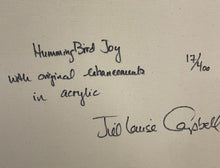 HummingBird Joy 17/400
with original enhancements
in acrylic
Jill Louise Campbell